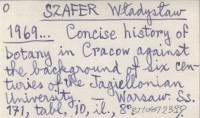 0 SZAFER Władysław
1969... Concise history of
botany in Cracow against
the background of six cen-
turies of the Jagiellonian
University, — Warsaw. Ss.
171, tabl. 10, il., 8°